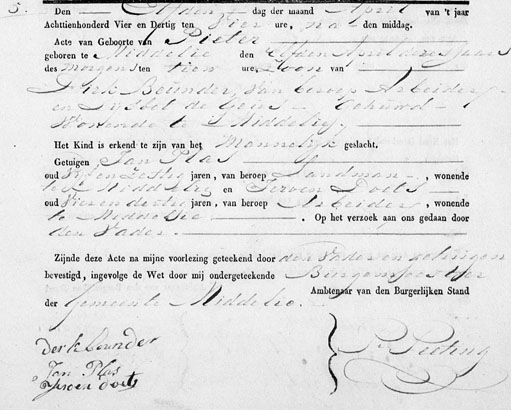 5. Den Elfden dag der maand April van 't jaar
Achttienhonderd Vier en Dertig ten Vier ure, na den middag.
Acte van Geboorte van Pieter
geboren te Middelie den Elfden April dezes Jaars
des morgens ten tien ure, Zoon van
Derk Beunder, van beroep Arbeider
en IJsbet de Goeis Gehuwd
Wonende te Middelie,
Het Kind is erkend te zijn van het Mannelijk geslacht.
Getuigen Jan Plas
oud Vijf en Zestig jaren, van beroep Landman, wonende
te Middelie en Jeroen Doets
oud Vier en dertig jaren, van beroep Arbeider, wonende
te Middelie. Op het verzoek aan ons gedaan door
den Vader.
Zijnde deze Acte na mijne voorlezing geteekend door den Vader en getuigen
bevestigd, ingevolge de Wet door mij ondergeteekende Burgemeester
Ambtenaar van den Burgerlijken Stand
der Gemeente Middelie.
Derk beunder
Jan Plas
Jeroen doets